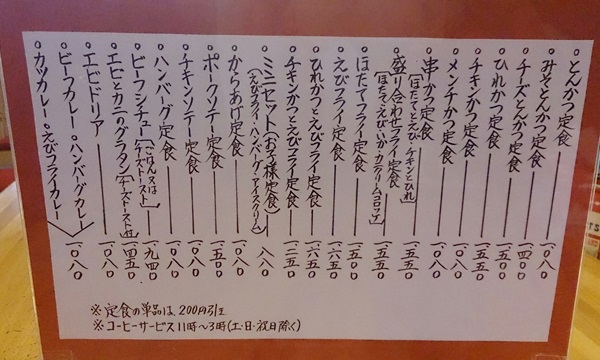 ◦とんかつ定食
◦みそとんかつ定食 一、〇八〇
◦チーズとんかつ定食 一、四〇〇
◦ひれかつ定食 一、五五〇
◦チキンかつ定食
◦メンチかつ定食 一、〇八〇
◦串かつ定食 一、〇八〇
[ほたてとえび チキンとひれ]
◦盛り合わせフライ定食 一、五五〇
[ほたて・えび・いか カニクリームコロッケ]
◦ほたてフライ定食 一、五五〇
◦えびフライ定食
◦ひれかつとえびフライ定食 一、六五〇
◦チキンかつとえびフライ定食 一、二五〇
◦ミニセット(お子様定食) 八八〇
(えびフライ・ハンバーグ・アイスクリーム)
◦からあげ定食 一、〇八〇
◦ポークソテー定食 一、五〇〇
◦チキンソテー定食 一、〇八〇
◦ハンバーグ定食 一、〇八〇
◦ビーフシチュー[ごはん又はチーズトースト] 一、九四〇
◦エビとカニのグラタン[チーズトースト付] 一、四五〇
◦エビドリア 一、〇八〇
◦ビーフカレー ◦ハンバーグカレー
◦カツカレー ◦えびフライカレー 一、〇八〇
※定食の単品は、200円引
※コーヒーサービス11時~3時(土・日・祝日除く)